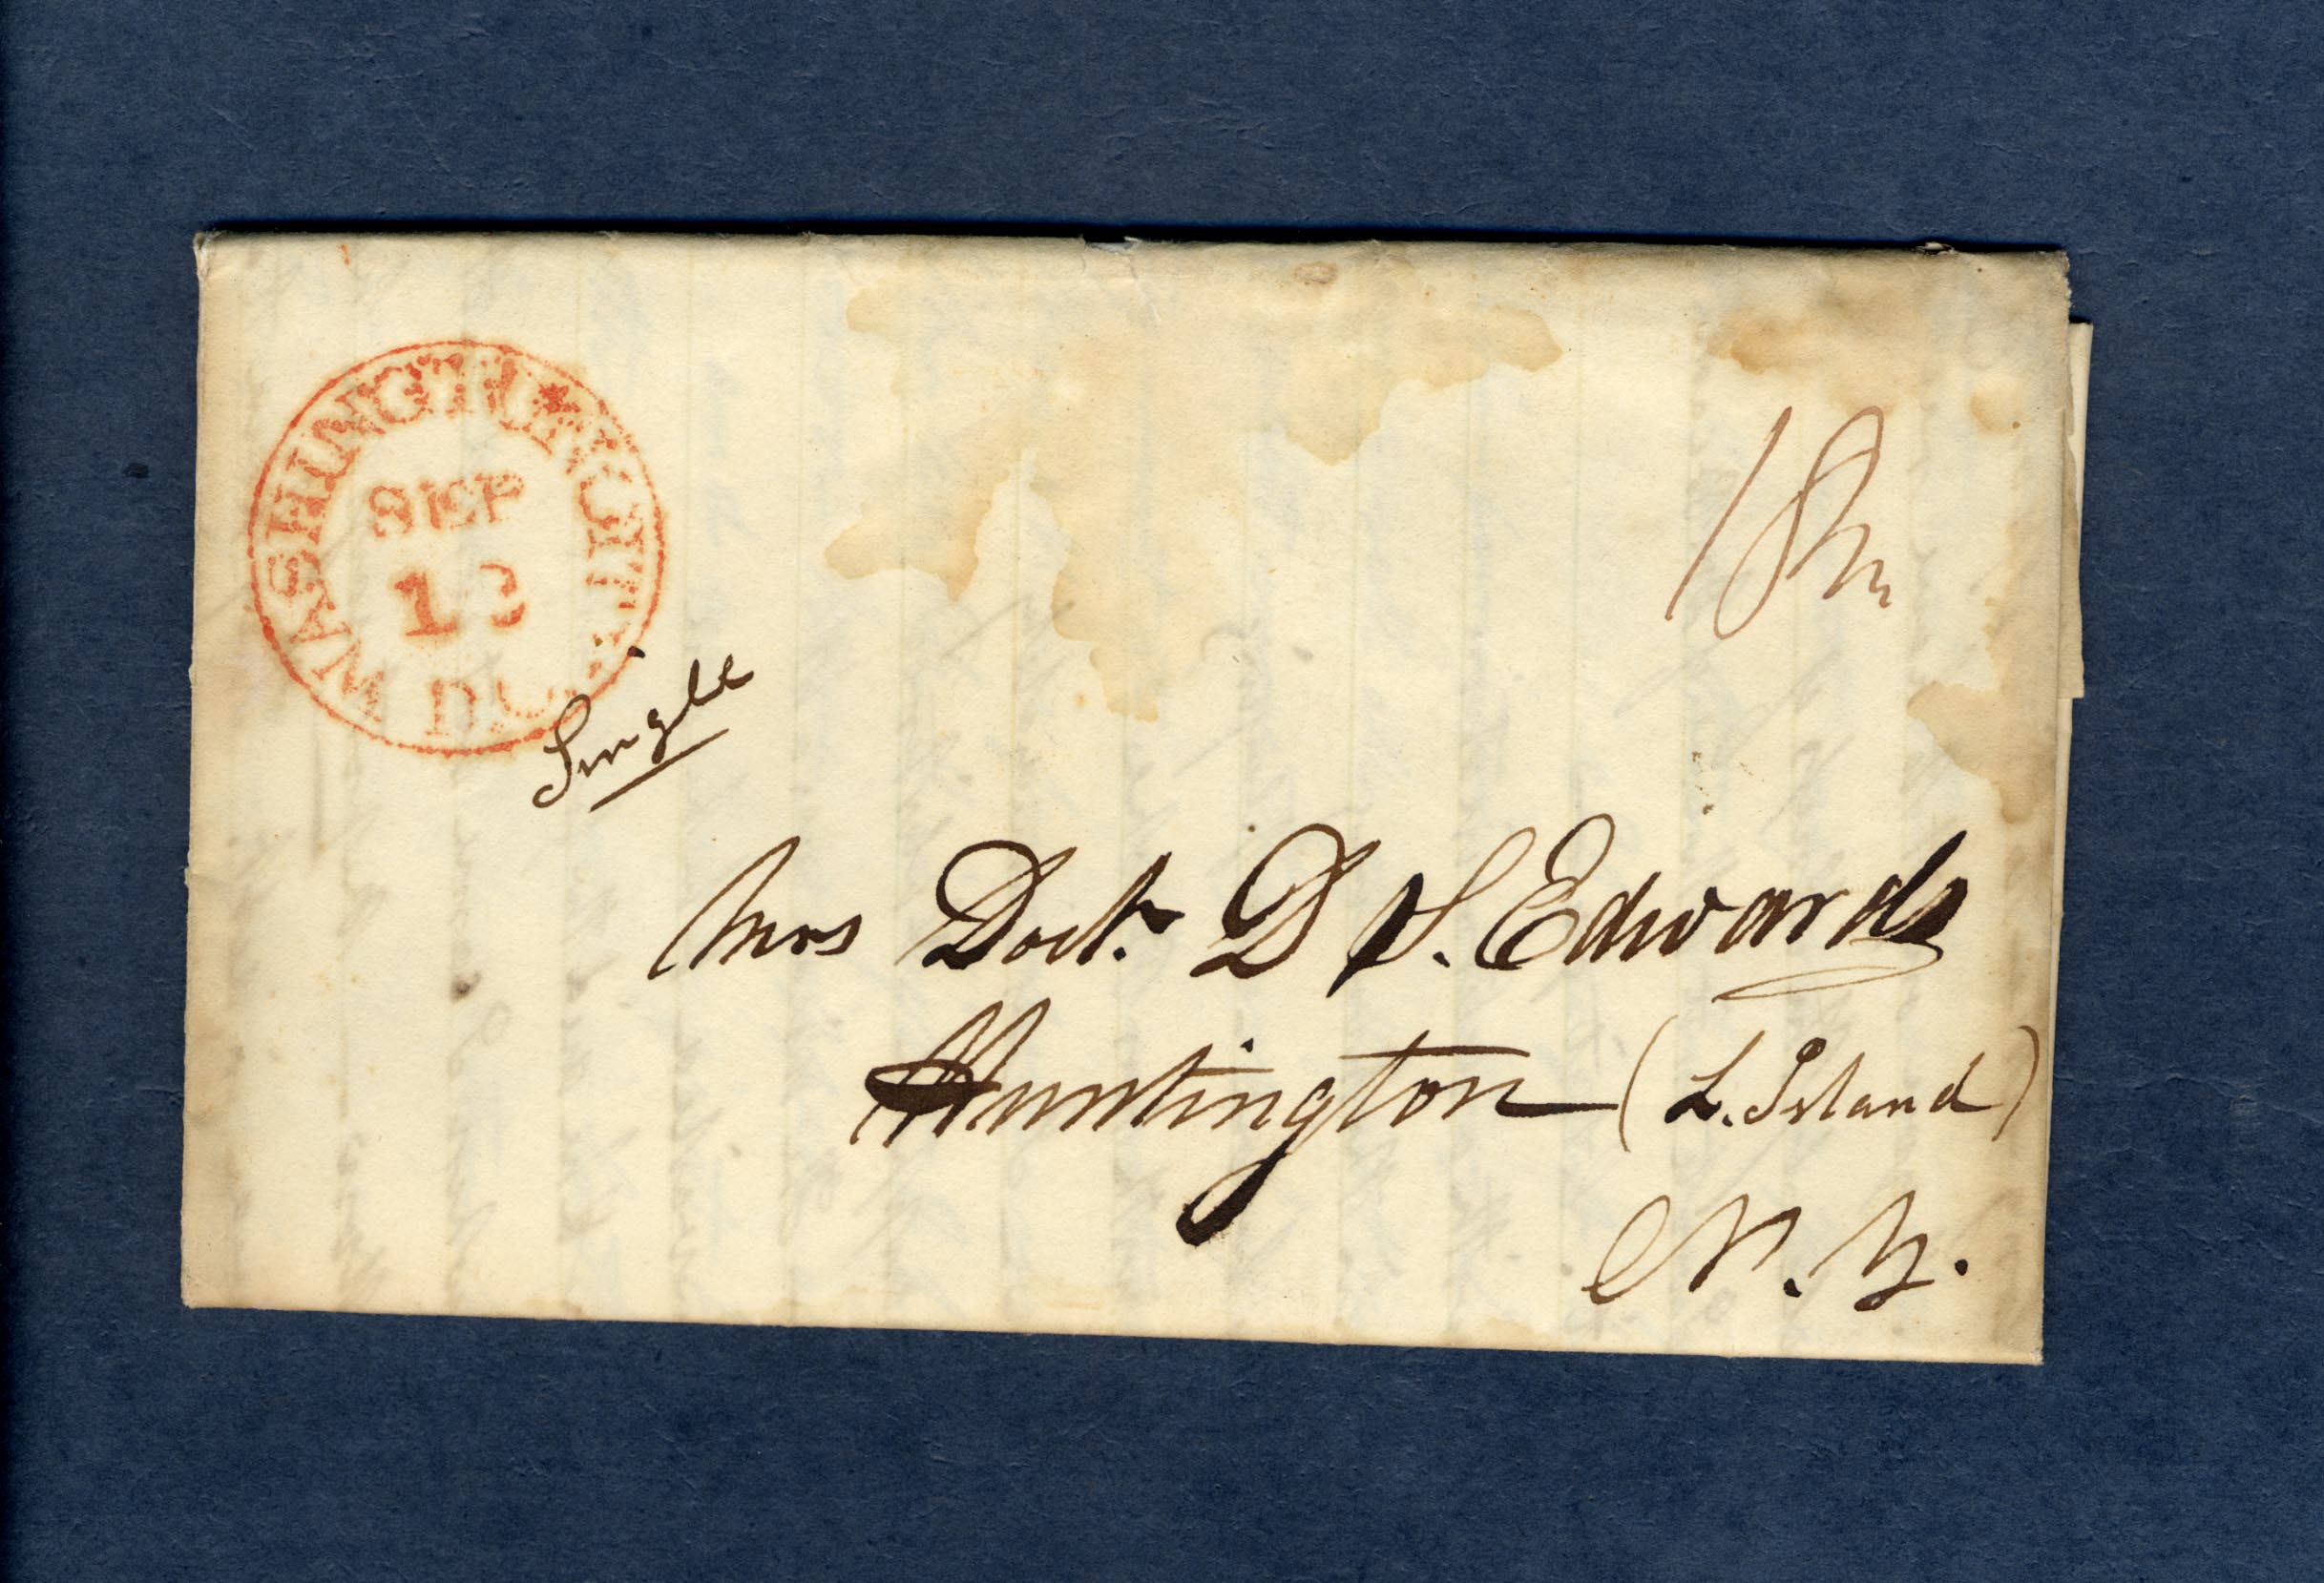 WASHINGTON CITY D.C.
SEP
Single
Mrs Doct. D S. Edwards
Huntington (L. Island)
N. Y.